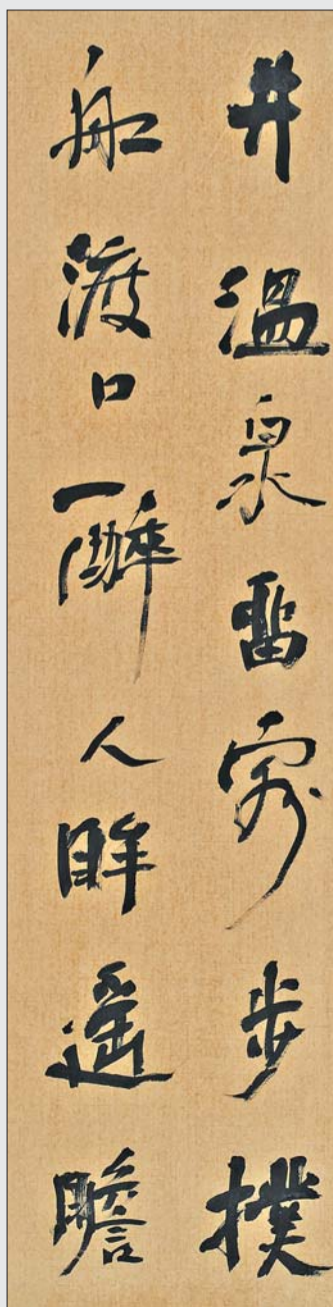 井溫泉留客步撲
船渡口醉人眸遥瞻